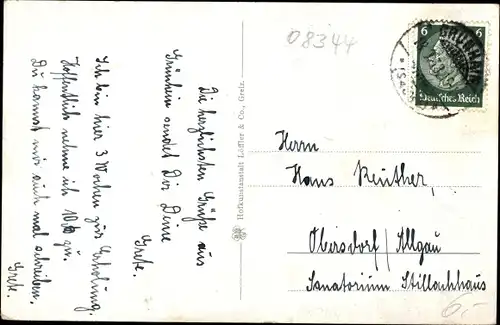 08344
6 6
Deutsches Reich
Die herzlichsten Grüße aus
Grünheim sendet Dir Deine
Grete.
Ich bin hier 3 Wochen zur Erholung.
Hoffentlich nehme ich 10 ℔ zu.
Du kannst mir auch mal schreiben.
Grete.
Hofkunstanstalt Löffler & Co., Greiz.
Herrn
Hans Reuther,
Obersdorf/Allgäu
Sanatorium Stillachhaus
6.-